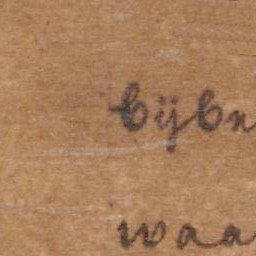 bijbe
waa